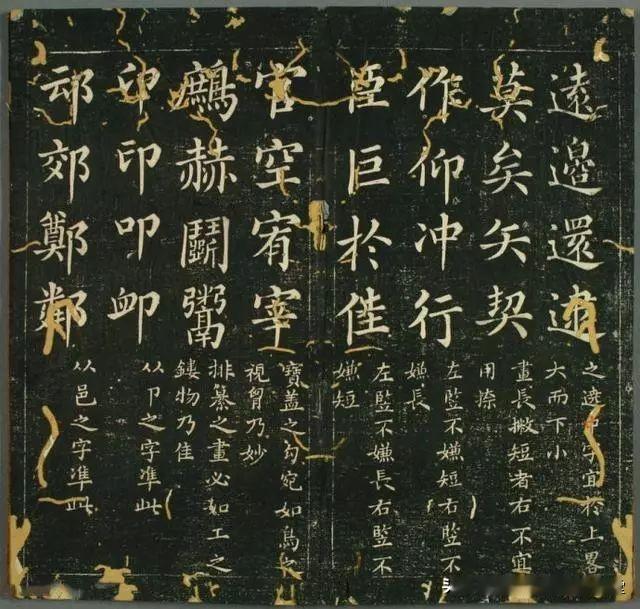 遠邊還
之選中字宜於上畧
大而下小
莫矣矢契
畫長撇短者右不宜
用捺
作仰冲行
左竪不嫌短右竪不
嫌長
臣巨於佳
左竪不嫌長右竪不
嫌短
官空宥宰
寶盖之勾宛如鳥之
視胷乃妙
赫鬭鬻
排纂之畫必如工之
鏤物乃佳
卬印叩卹
从卩之字準此
郊鄭鄰
从邑之字準此